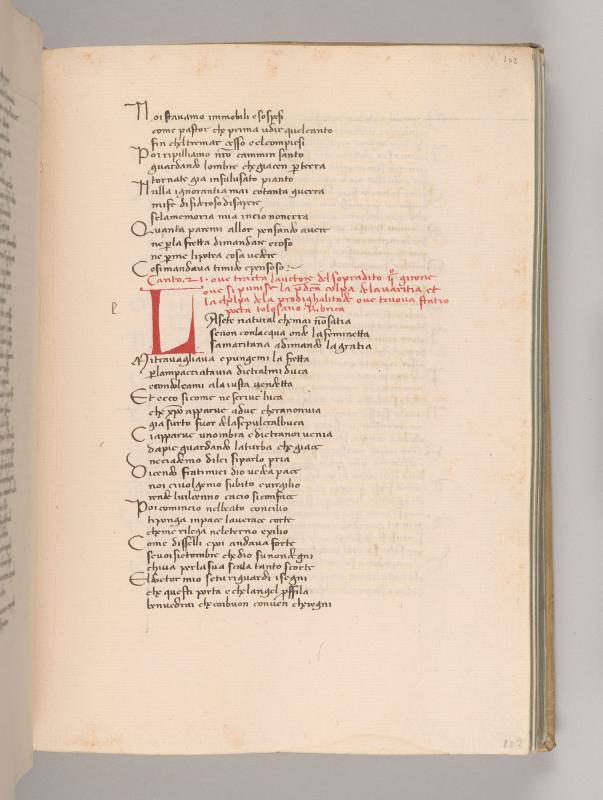 102
Noi stavamo immobili e sospesi
come pastor che prima udir quel canto
fin chel tremar cesso e el compiesi
Poi ripilliamo nr̄o cammin santo
guardando lombre che giacen p terra
tornate gia in su lusato pianto
Nulla ignorantia mai cotanta guerra
mi fe disideroso di sapere
se la memoria mia in cio non erra
Quanta paremi allor pensando avere
ne per la fretta dimandare er oso
ne per me li potea cosa vedere
Cosi mandava timido e pensoso
Canto 21 ove tracta lauctore del sopradito girone
ove si punisce la colpa de lavaritia et
la cholpa de la prodighalitade ove truova statio
poeta tolosano Rubrica
l
LA sete natural che mai nō satia
se non con lacqua onde la feminetta
samaritana adimando la gratia
Mi travagliava e pungemi la fretta
per la via dietro al mi duca
e condoleami a la iusta vendetta
Et ecco si come ne scrive luca
che xpō apparve a due cheran in via
gia surto fuor de la sepulcral buca
Ci apparve un ombra e dietro a noi venia
da pie guardando la turba che giace
ne ci ademo di lei si parlo pria
Dicendo frati miei dio ve dea pace
noi ci volgemo subito e virgilio
rende lui cenno ca cio si conface
Poi comincio nel beato concilio
ti ponga in pace la verace corte
che me rilega nel eterno exilio
Come disselli e poi andava forte
se voi siete ombre che dio su non degni
chi va per la sua scala tanto scorte
El doctor mio se tu riguardi i segni
che questi porta e che langel p̄ffila
ben vedrai che coi buon conven che regni
102